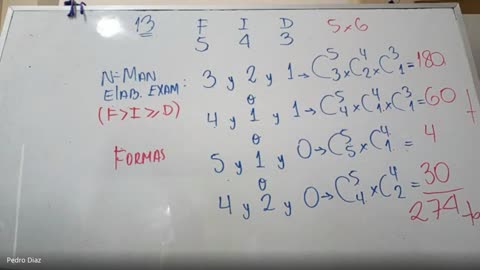 13 F I D 5×6
5 4 3
N=MAN
ELAB. EXAM:
(F>I≥D)
FORMAS
3 y 2 y 1 → C⁵₃ × C⁴₂ × C³₁ = 180
o
4 y 1 y 1 → C⁵₄ × C⁴₁ × C³₁ = 60 +
o
5 y 1 y 0 → C⁵₅ × C⁴₁ = 4
o
4 y 2 y 0 → C⁵₄ × C⁴₂ = 30
274
Pedro Diaz